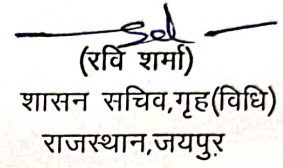 Sd
(रवि शर्मा)
शासन सचिव,गृह(विधि)
राजस्थान,जयपुर